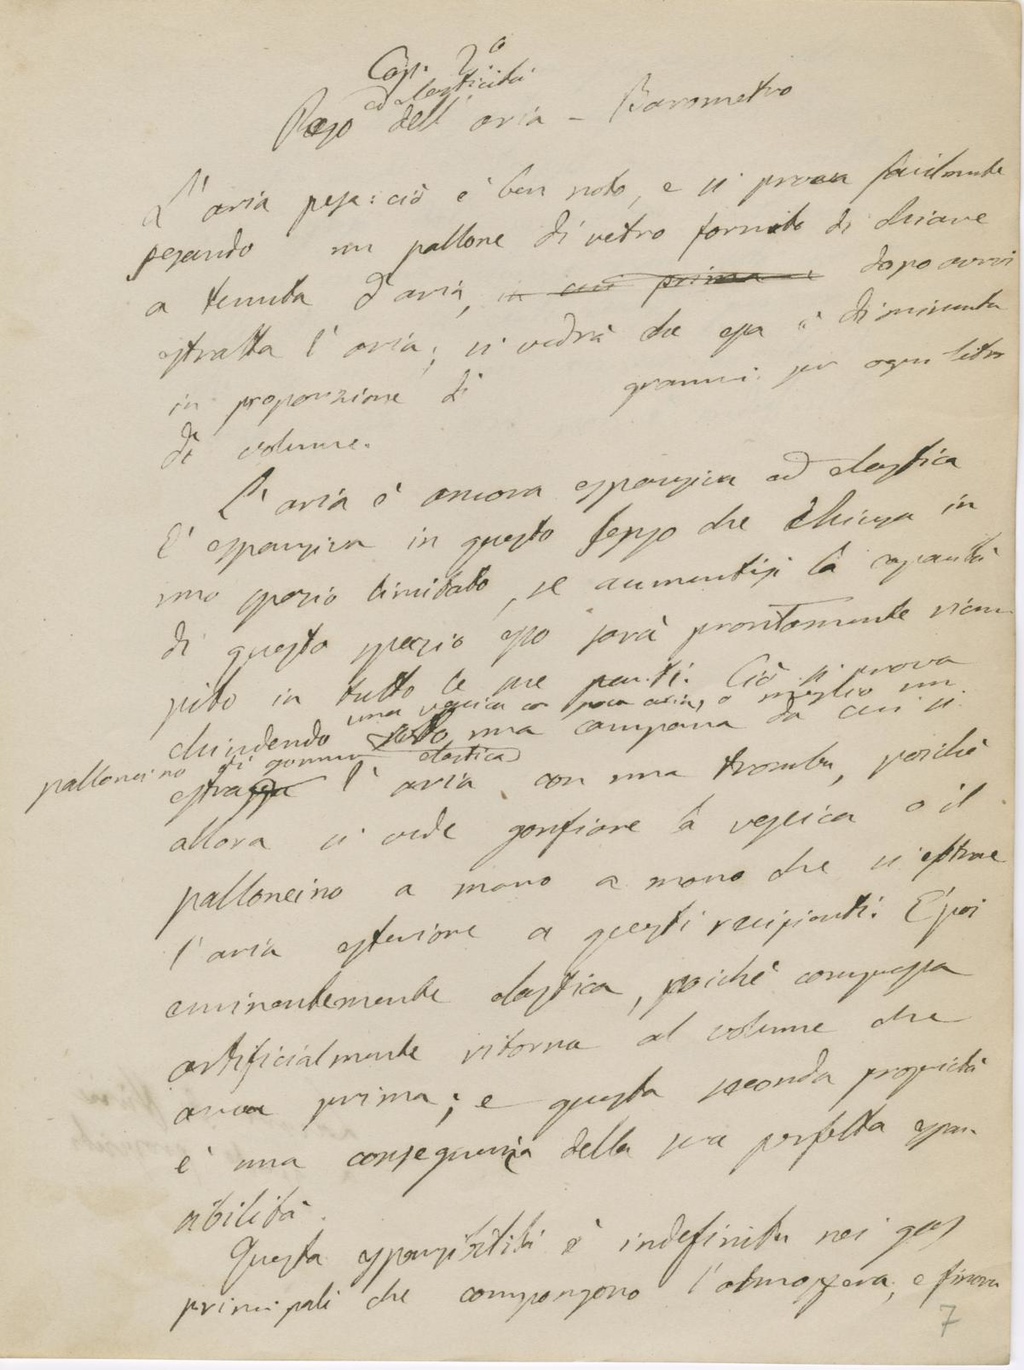 Cap. 2º
ed elasticità
Peso dell'aria - Barometro
L'aria pesa: ciò è ben noto, e si prova facilmente
pesando un pallone di vetro fornito di chiave
a tenuta d'aria, in cui prima e dopo avervi
estratta l'aria; si vedrà che essa è diminuita
in proporzione di grammi per ogni litro
di volume.
L'aria è ancora espansiva ed elastica
E' espansiva in questo senso che chiusa in
uno spazio limitato, se aumentisi la capacità
di questo spazio esso sarà prontamente riem-
pito in tutte le sue parti. Ciò si prova
una vescica con poca aria, o meglio un
chiudendo sotto una campana da cui si
palloncino di gomma elastica
estragga l'aria con una tromba, poichè
allora si vede gonfiare la vescica o il
palloncino a mano a mano che si estrae
l'aria esteriore a questi recipienti. E' poi
eminentemente elastica, poichè compressa
artificialmente ritorna al volume che
avea prima; e questa seconda proprietà
è una conseguenza della sua perfetta espan-
sibilità.
Questa espansibilità è indefinita nei gas
principali che compongono l'atmosfera, e finora
7